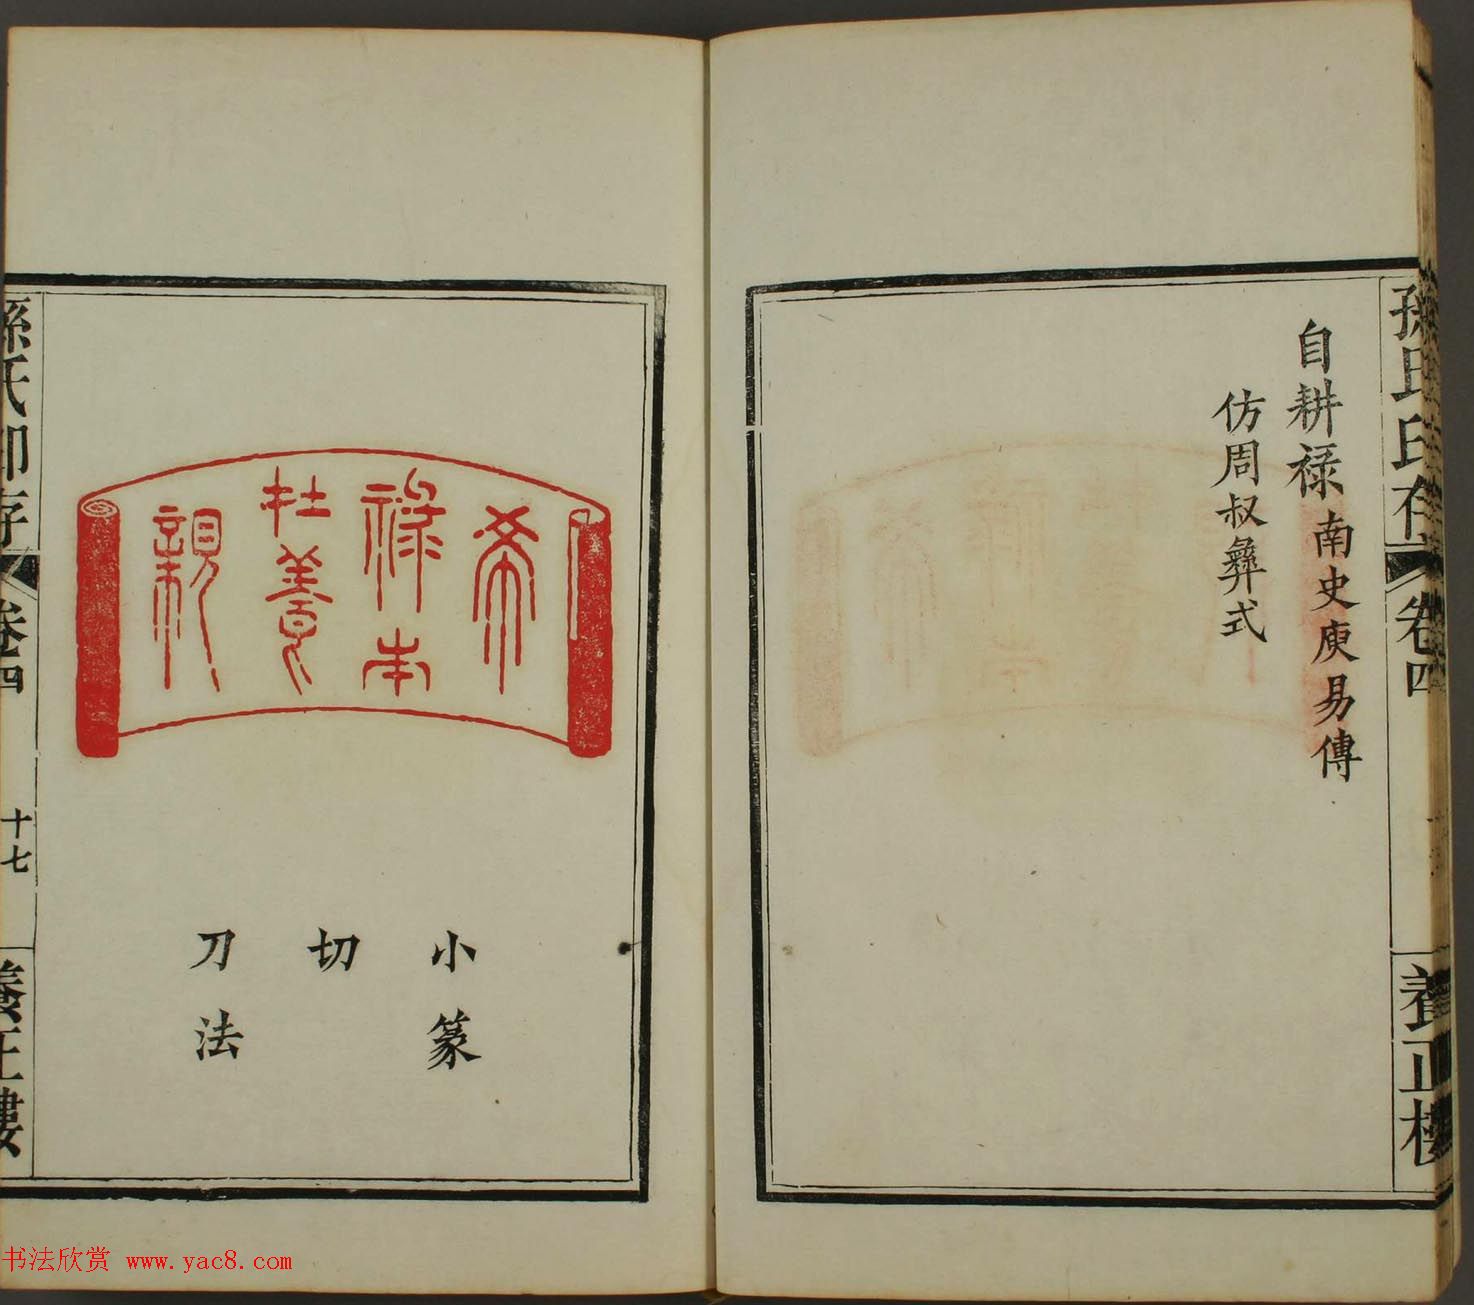 孫氏印存
卷四
養正樓
自耕祿南史庾易傳
仿周叔彝式
希
祿本
杜養
親
小篆
切
刀法
孫氏印存
卷四
十七
養正樓
书法欣赏 www.yac8.com